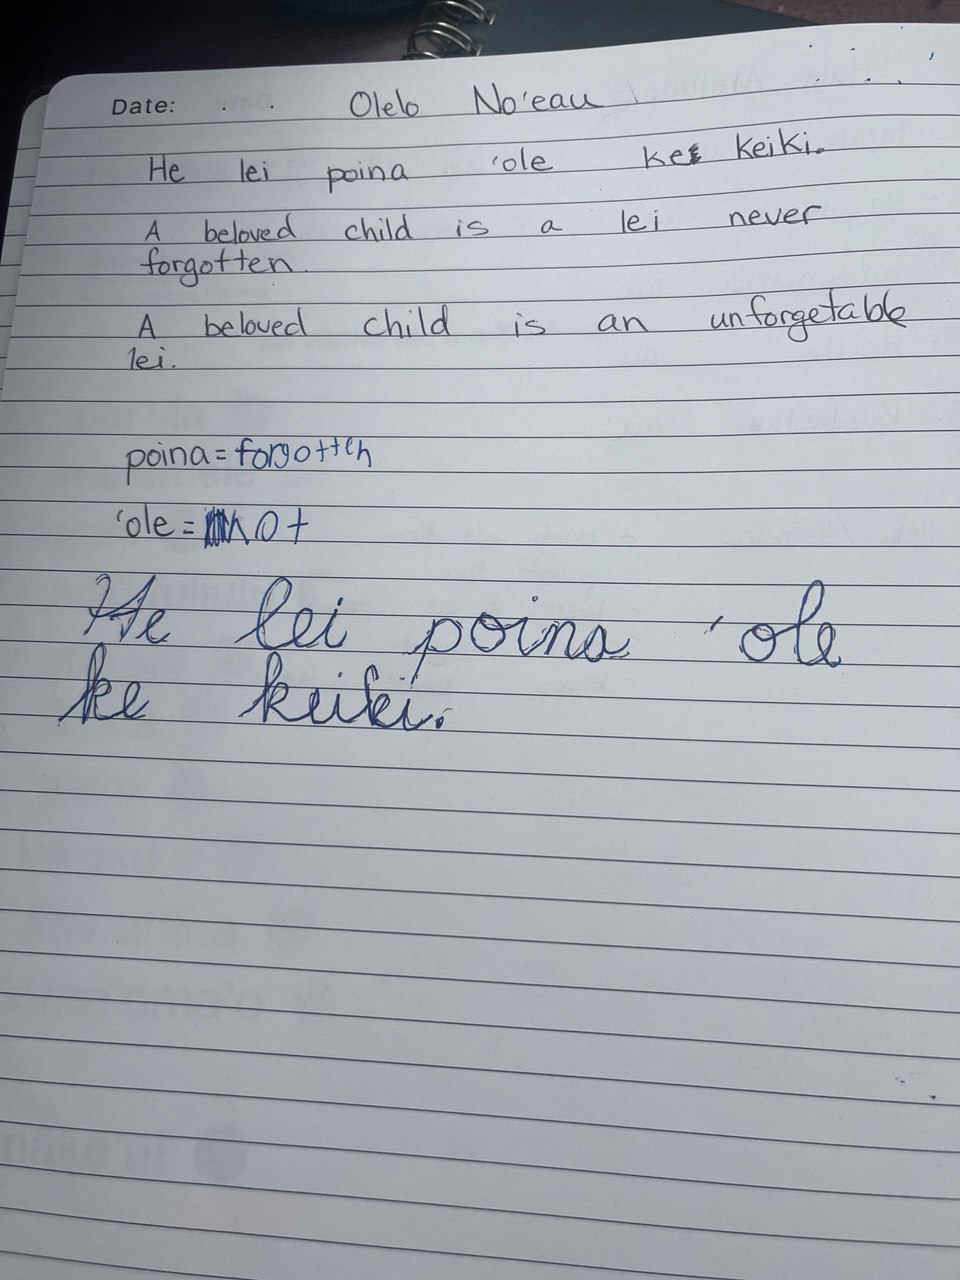 Date: Olelo No'eau
He lei poina 'ole ke keiki.
A beloved child is a lei never
forgotten.
A beloved child is an unforgetable
lei.
poina = forgotten
'ole = not
He lei poina 'ole
ke keiki.